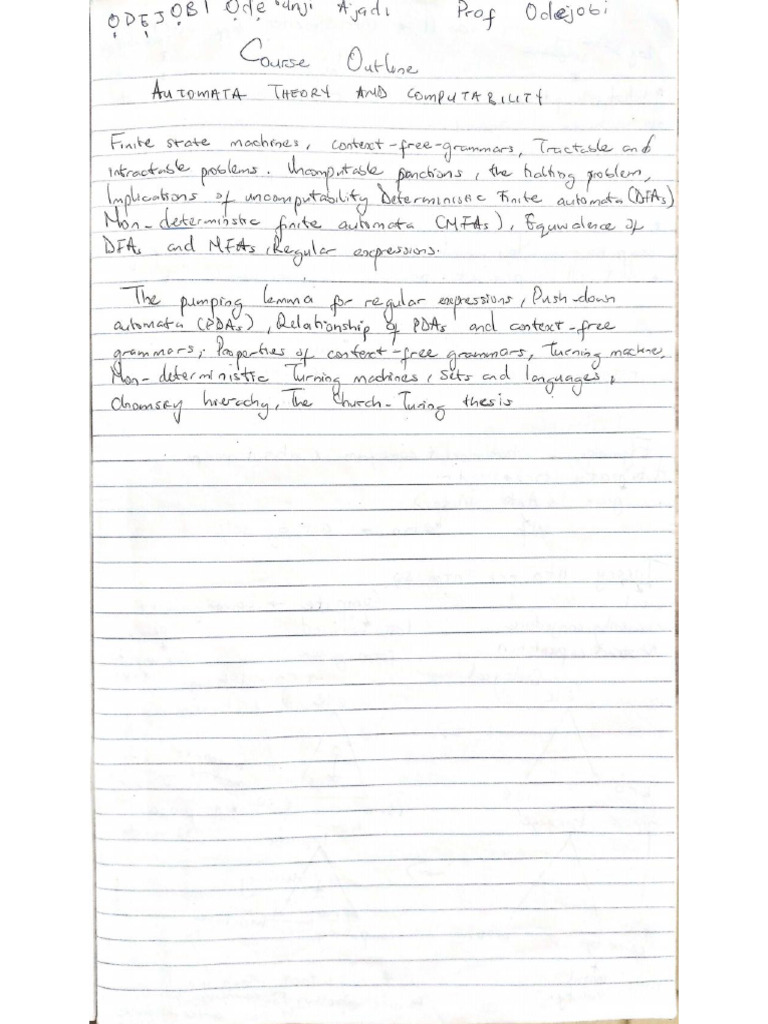 ỌDẸJỌBI Ọdẹ Ajadi Prof Odejobi
Course Outline
AUTOMATA THEORY AND COMPUTABILITY
Finite state machines, context-free-grammars, Tractable and
intractable problems. Uncomputable functions, the halting problem,
Implications of uncomputability Deterministic Finite automata (DFAs)
Non-deterministic finite automata (NFAs), Equivalence of
DFAs and NFAs, Regular expressions.
The pumping lemma for regular expressions, Push-down
automata (PDAs), Relationship of PDAs and context-free
grammars, Properties of context-free grammars, Turning machine,
Non-deterministic Turning machines, sets and languages,
Chomsky hierachy, The Church-Turing thesis